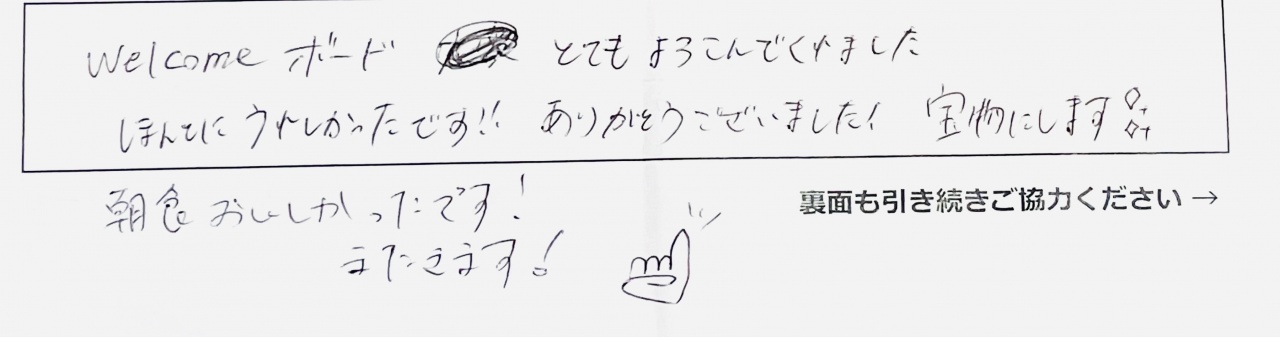 Welcome ボード とても よろこんでくれました
ほんとに うれしかったです!! ありがとうございました! 宝物にします
朝食 おいしかったです!
裏面も引き続きご協力ください →
またきます!